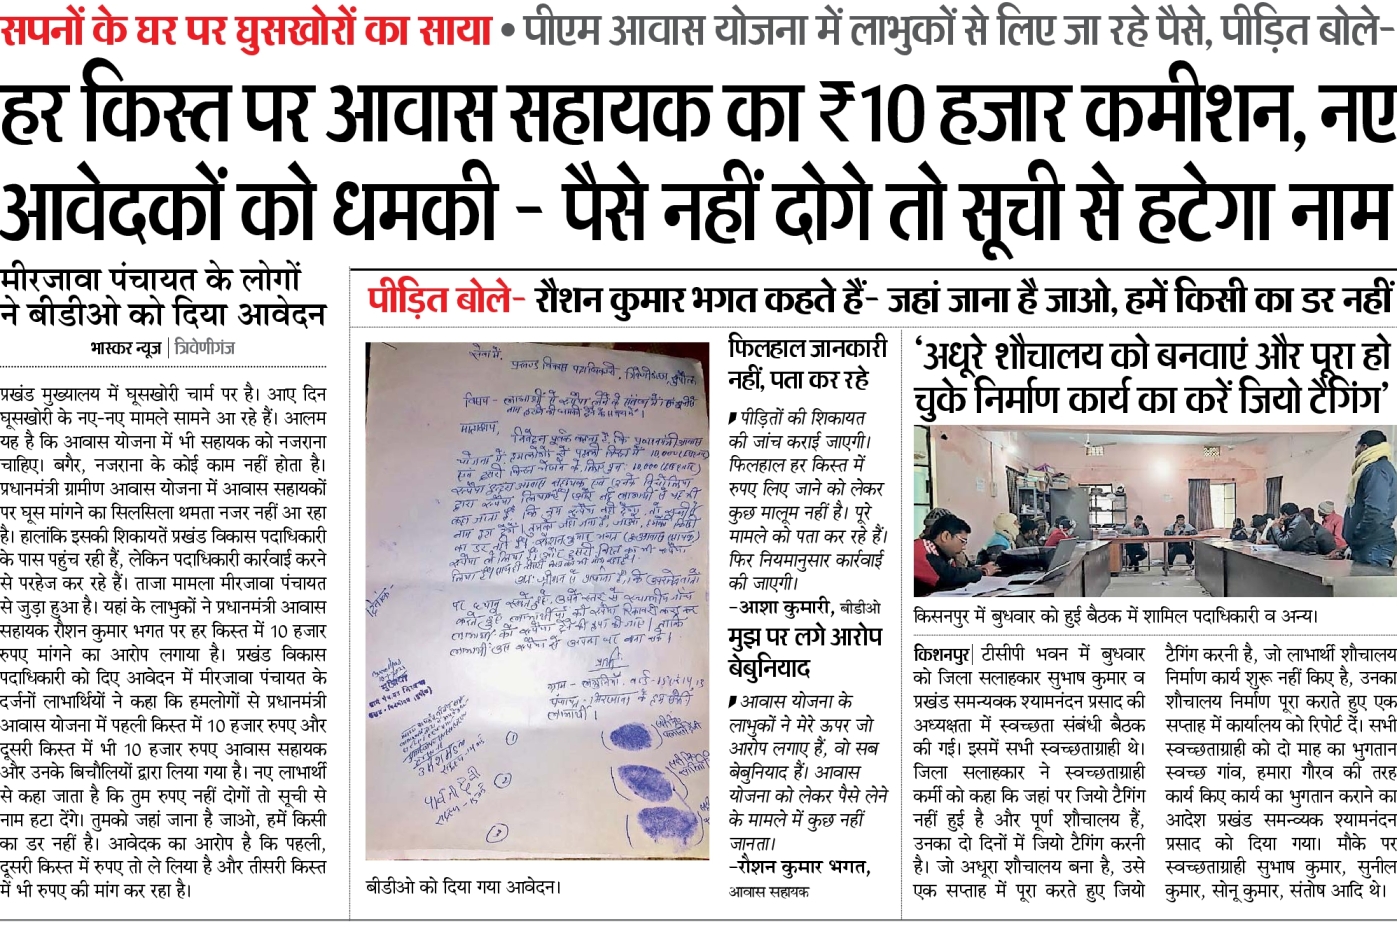 सपनों के घर पर घुसखोरों का साया • पीएम आवास योजना में लाभुकों से लिए जा रहे पैसे, पीड़ित बोले-
हर किस्त पर आवास सहायक का ₹10 हजार कमीशन, नए
आवेदकों को धमकी - पैसे नहीं दोगे तो सूची से हटेगा नाम
मीरजावा पंचायत के लोगों
ने बीडीओ को दिया आवेदन
भास्कर न्यूज | त्रिवेणीगंज
प्रखंड मुख्यालय में घूसखोरी चार्म पर है। आए दिन
घूसखोरी के नए-नए मामले सामने आ रहे हैं। आलम
यह है कि आवास योजना में भी सहायक को नजराना
चाहिए। बगैर, नजराना के कोई काम नहीं होता है।
प्रधानमंत्री ग्रामीण आवास योजना में आवास सहायकों
पर घूस मांगने का सिलसिला थमता नजर नहीं आ रहा
है। हालांकि इसकी शिकायतें प्रखंड विकास पदाधिकारी
के पास पहुंच रही हैं, लेकिन पदाधिकारी कार्रवाई करने
से परहेज कर रहे हैं। ताजा मामला मीरजावा पंचायत
से जुड़ा हुआ है। यहां के लाभुकों ने प्रधानमंत्री आवास
सहायक रौशन कुमार भगत पर हर किस्त में 10 हजार
रुपए मांगने का आरोप लगाया है। प्रखंड विकास
पदाधिकारी को दिए आवेदन में मीरजावा पंचायत के
दर्जनों लाभार्थियों ने कहा कि हमलोगों से प्रधानमंत्री
आवास योजना में पहली किस्त में 10 हजार रुपए और
दूसरी किस्त में भी 10 हजार रुपए आवास सहायक
और उनके बिचौलियों द्वारा लिया गया है। नए लाभार्थी
से कहा जाता है कि तुम रुपए नहीं दोगों तो सूची से
नाम हटा देंगे। तुमको जहां जाना है जाओ, हमें किसी
का डर नहीं है। आवेदक का आरोप है कि पहली,
दूसरी किस्त में रुपए तो ले लिया है और तीसरी किस्त
में भी रुपए की मांग कर रहा है।
पीड़ित बोले- रौशन कुमार भगत कहते हैं- जहां जाना है जाओ, हमें किसी का डर नहीं
सेवा में,
प्रखण्ड विकास पदाधिकारी, त्रिवेणीगंज, सुपौल
महाशय,
बीडीओ को दिया गया आवेदन।
फिलहाल जानकारी
नहीं, पता कर रहे
पीड़ितों की शिकायत
की जांच कराई जाएगी।
फिलहाल हर किस्त में
रुपए लिए जाने को लेकर
कुछ मालूम नहीं है। पूरे
मामले को पता कर रहे हैं।
फिर नियमानुसार कार्रवाई
की जाएगी।
-आशा कुमारी, बीडीओ
मुझ पर लगे आरोप
बेबुनियाद
आवास योजना के
लाभुकों ने मेरे ऊपर जो
आरोप लगाए हैं, वो सब
बेबुनियाद हैं। आवास
योजना को लेकर पैसे लेने
के मामले में कुछ नहीं
जानता।
-रौशन कुमार भगत,
आवास सहायक
‘अधूरे शौचालय को बनवाएं और पूरा हो
चुके निर्माण कार्य का करें जियो टैगिंग’
किसनपुर में बुधवार को हुई बैठक में शामिल पदाधिकारी व अन्य।
किशनपुर| टीसीपी भवन में बुधवार
को जिला सलाहकार सुभाष कुमार व
प्रखंड समन्यवक श्यामनंदन प्रसाद की
अध्यक्षता में स्वच्छता संबंधी बैठक
की गई। इसमें सभी स्वच्छताग्राही थे।
जिला सलाहकार ने स्वच्छताग्राही
कर्मी को कहा कि जहां पर जियो टैगिंग
नहीं हुई है और पूर्ण शौचालय हैं,
उनका दो दिनों में जियो टैगिंग करनी
है। जो अधूरा शौचालय बना है, उसे
एक सप्ताह में पूरा करते हुए जियो
टैगिंग करनी है, जो लाभार्थी शौचालय
निर्माण कार्य शुरू नहीं किए है, उनका
शौचालय निर्माण पूरा कराते हुए एक
सप्ताह में कार्यालय को रिपोर्ट दें। सभी
स्वच्छताग्राही को दो माह का भुगतान
स्वच्छ गांव, हमारा गौरव की तरह
कार्य किए कार्य का भुगतान कराने का
आदेश प्रखंड समन्व्यक श्यामनंदन
प्रसाद को दिया गया। मौके पर
स्वच्छताग्राही सुभाष कुमार, सुनील
कुमार, सोनू कुमार, संतोष आदि थे।